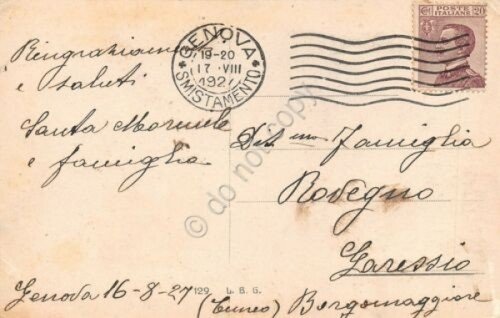 Ringraziamo
e saluti
Santa
e famiglia
Genova 16-8-27
GENOVA
19-20
17 · VIII
192
SMISTAMENTO
POSTE
ITALIANE 20
Dist.ma Famiglia
Rovegno
Garessio
(Cuneo) Borgomaggiore
129 L. B. G.
© do not copy